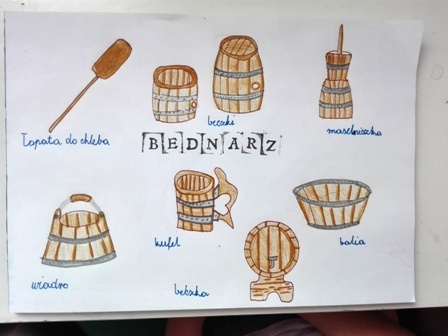 beczki
łopata do chleba
maselniczka
BEDNARZ
kufel
balia
wiadro
beczka